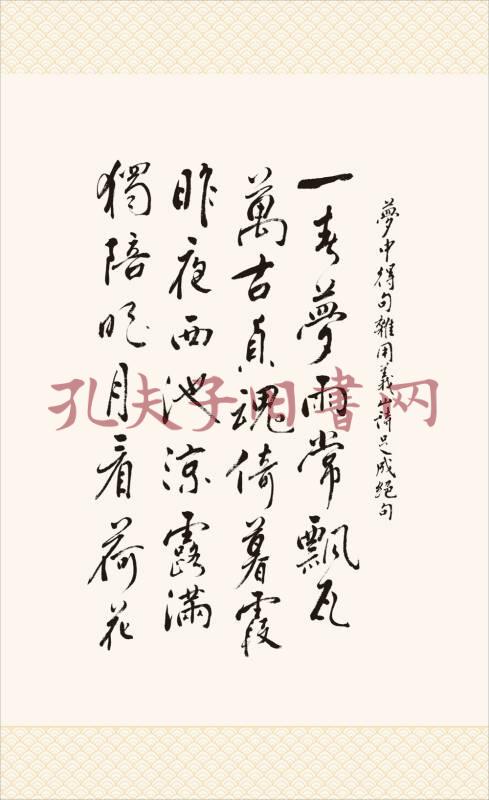 夢中得句雜用義山詩足成絕句
一春夢雨常飄瓦
萬古貞魂倚暮霞
昨夜西池涼露滿
獨陪明月看荷花
孔夫子旧書网